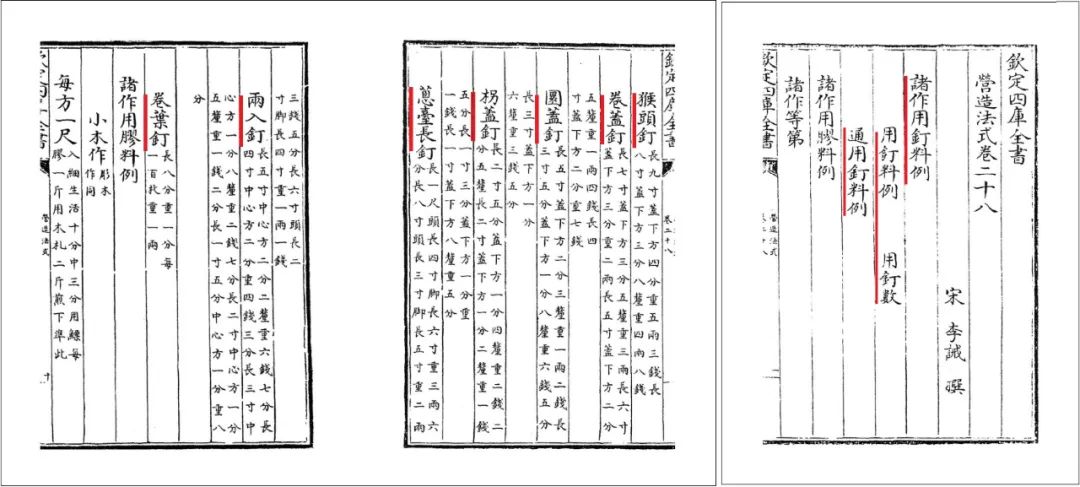 欽定四庫全書
營造法式卷二十八
宋 李誡 撰
諸作用釘料例
用釘料例 用釘數
通用釘料例
諸作用膠料例
諸作等第
欽定四庫全書 營造法式
猴頭釘 長九寸蓋下方四分重五兩三錢長
八寸蓋下方三分八釐重四兩八錢
卷蓋釘 長七寸蓋下方三分五釐重三兩長六寸
蓋下方三分重二兩長五寸蓋下方二分
五釐重一兩四錢長四
寸蓋下方二分重七錢
圜蓋釘 長五寸蓋下方二分三釐重一兩二錢長
三寸五分蓋下方一分八釐重六錢五分
長三寸蓋下方一分
六釐重三錢五分
拐蓋釘 長二寸五分蓋下方一分四釐重二錢二
分五釐長二寸蓋下方一分二釐重一錢
五分長一寸三分蓋下方一分重
一錢長一寸蓋下方八釐重五分
蔥臺長釘 長一尺頭長四寸脚長六寸重三兩六
分長八寸頭長三寸脚長五寸重二兩
三錢五分長六寸頭長二
寸脚長四寸重一兩一錢
兩入釘 長五寸中心方二分二釐重六錢七分長
四寸中心方二分重四錢三分長三寸中
心方一分八釐重二錢七分長二寸中心方一分
五釐重一錢二分長一寸五分中心方一分重八
分
卷葉釘 長八分重一分每
一百枚重一兩
諸作用膠料例
小木作 彫木
作同
每方一尺 入細生活十分中三分用鰾每
膠一斤用木札二斤煎下準此
營造法式